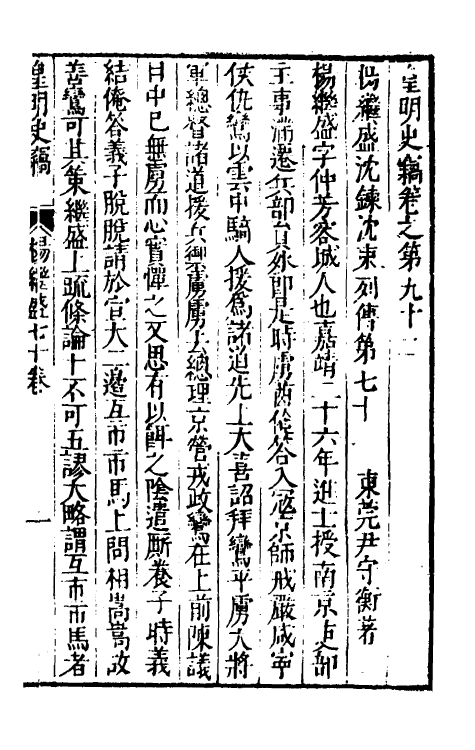 皇明史竊卷之第九十二
楊繼盛沈鍊沈束列傳第七十 東莞尹守衡著
楊繼盛字仲芳容城人也嘉靖二十六年進士授南京吏部
主事滿遷兵部員外郎是時虜酋俺答入寇京師戒嚴咸寧
侯仇鸞以雲中騎入援為諸道先上大喜詔拜鸞平虜大將
軍總督諸道援兵禦虜虜去總理京營戎政鸞在上前陳議
目中已無虜而心實憚之又思有以餌之陰遣廝養子時義
結俺答義子脫脫請於宣大二邊互市市馬上問相嵩嵩故
善鸞可其策繼盛上疏條論十不可五謬大略謂互市市馬者
皇明史竊 楊繼盛七十卷 一